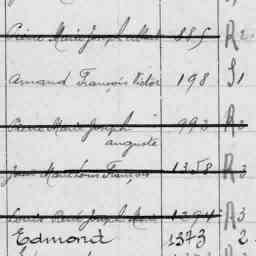 Pierre Marie Joseph 385 R 2
Amand François Victor 198 S 1
Pierre Marie Joseph 993 R 3
auguste
Jean Marie Louis François 1358 R 3
Louis Marie 1294 R 3
Edmond 1373 2